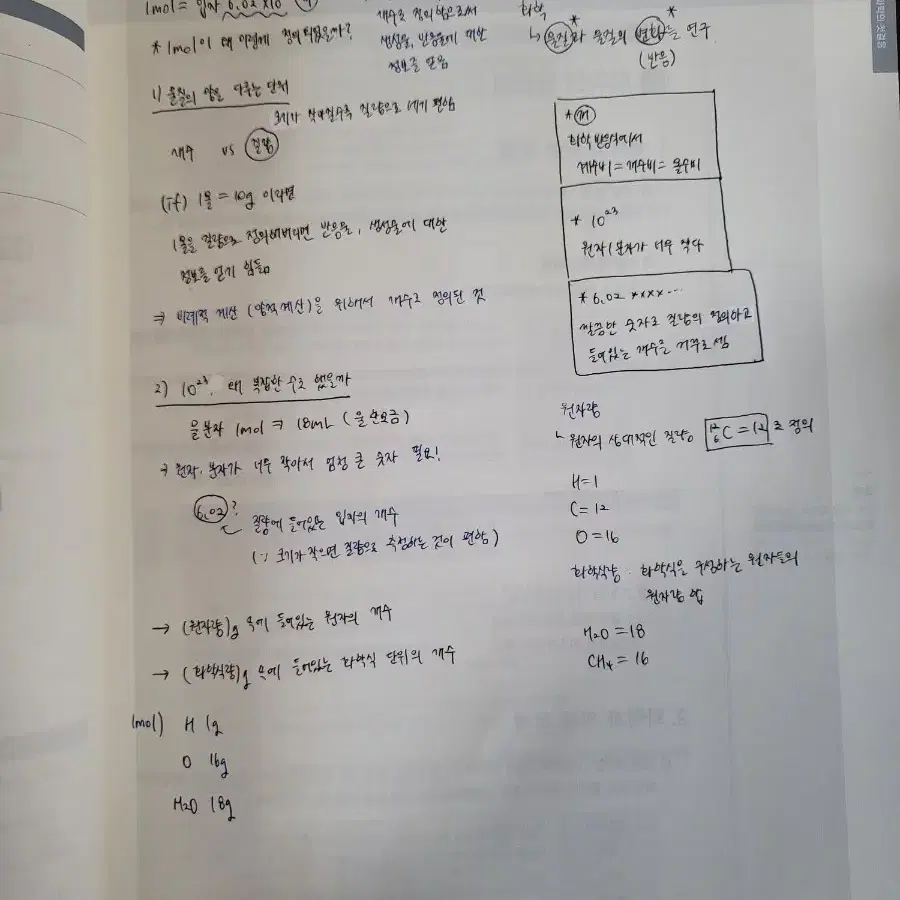 1mol = 입자 6.02×10
* 1mol이 왜 이렇게 정의되었을까?
개수로 정의함으로서
생성물, 반응물에 대한
정보를 얻음
화학
↳ 물질과 물질의 변화를 연구
(반응)
1) 물질의 양을 다루는 단위
크기가 작아질수록 질량으로 세기 편함
개수 vs 질량
(if) 1몰 = 10g 이라면
1몰을 질량으로 정의해버리면 반응물, 생성물에 대한
정보를 얻기 힘듦
⇒ 비례적 계산 (양적 계산)을 위해서 개수로 정의된 것
화학 반응식에서
계수비 = 개수비 = 몰수비
* 10²³
원자/분자가 너무 작다
* 6.02 ××××…
깔끔한 숫자로 질량의 정의하고
들어있는 개수를 거꾸로 셈
2) 10²³. 왜 복잡한 수로 했을까
물분자 1mol ⇒ 18mL (물 한모금)
→ 원자, 분자가 너무 작아서 엄청 큰 숫자 필요!
6.02?
질량에 들어있는 입자의 개수
(∵ 크기가 작으면 질량으로 측정하는 것이 편함)
→ (원자량)g 속에 들어있는 원자의 개수
→ (화학식량)g 속에 들어있는 화학식 단위의 개수
1mol) H 1g
O 16g
H₂O 18g
원자량
↳ 원자의 상대적인 질량, ¹²₆C = 12 로 정의
H = 1
C = 12
O = 16
화학식량 : 화학식을 구성하는 원자들의
원자량 합
H₂O = 18
CH₄ = 16